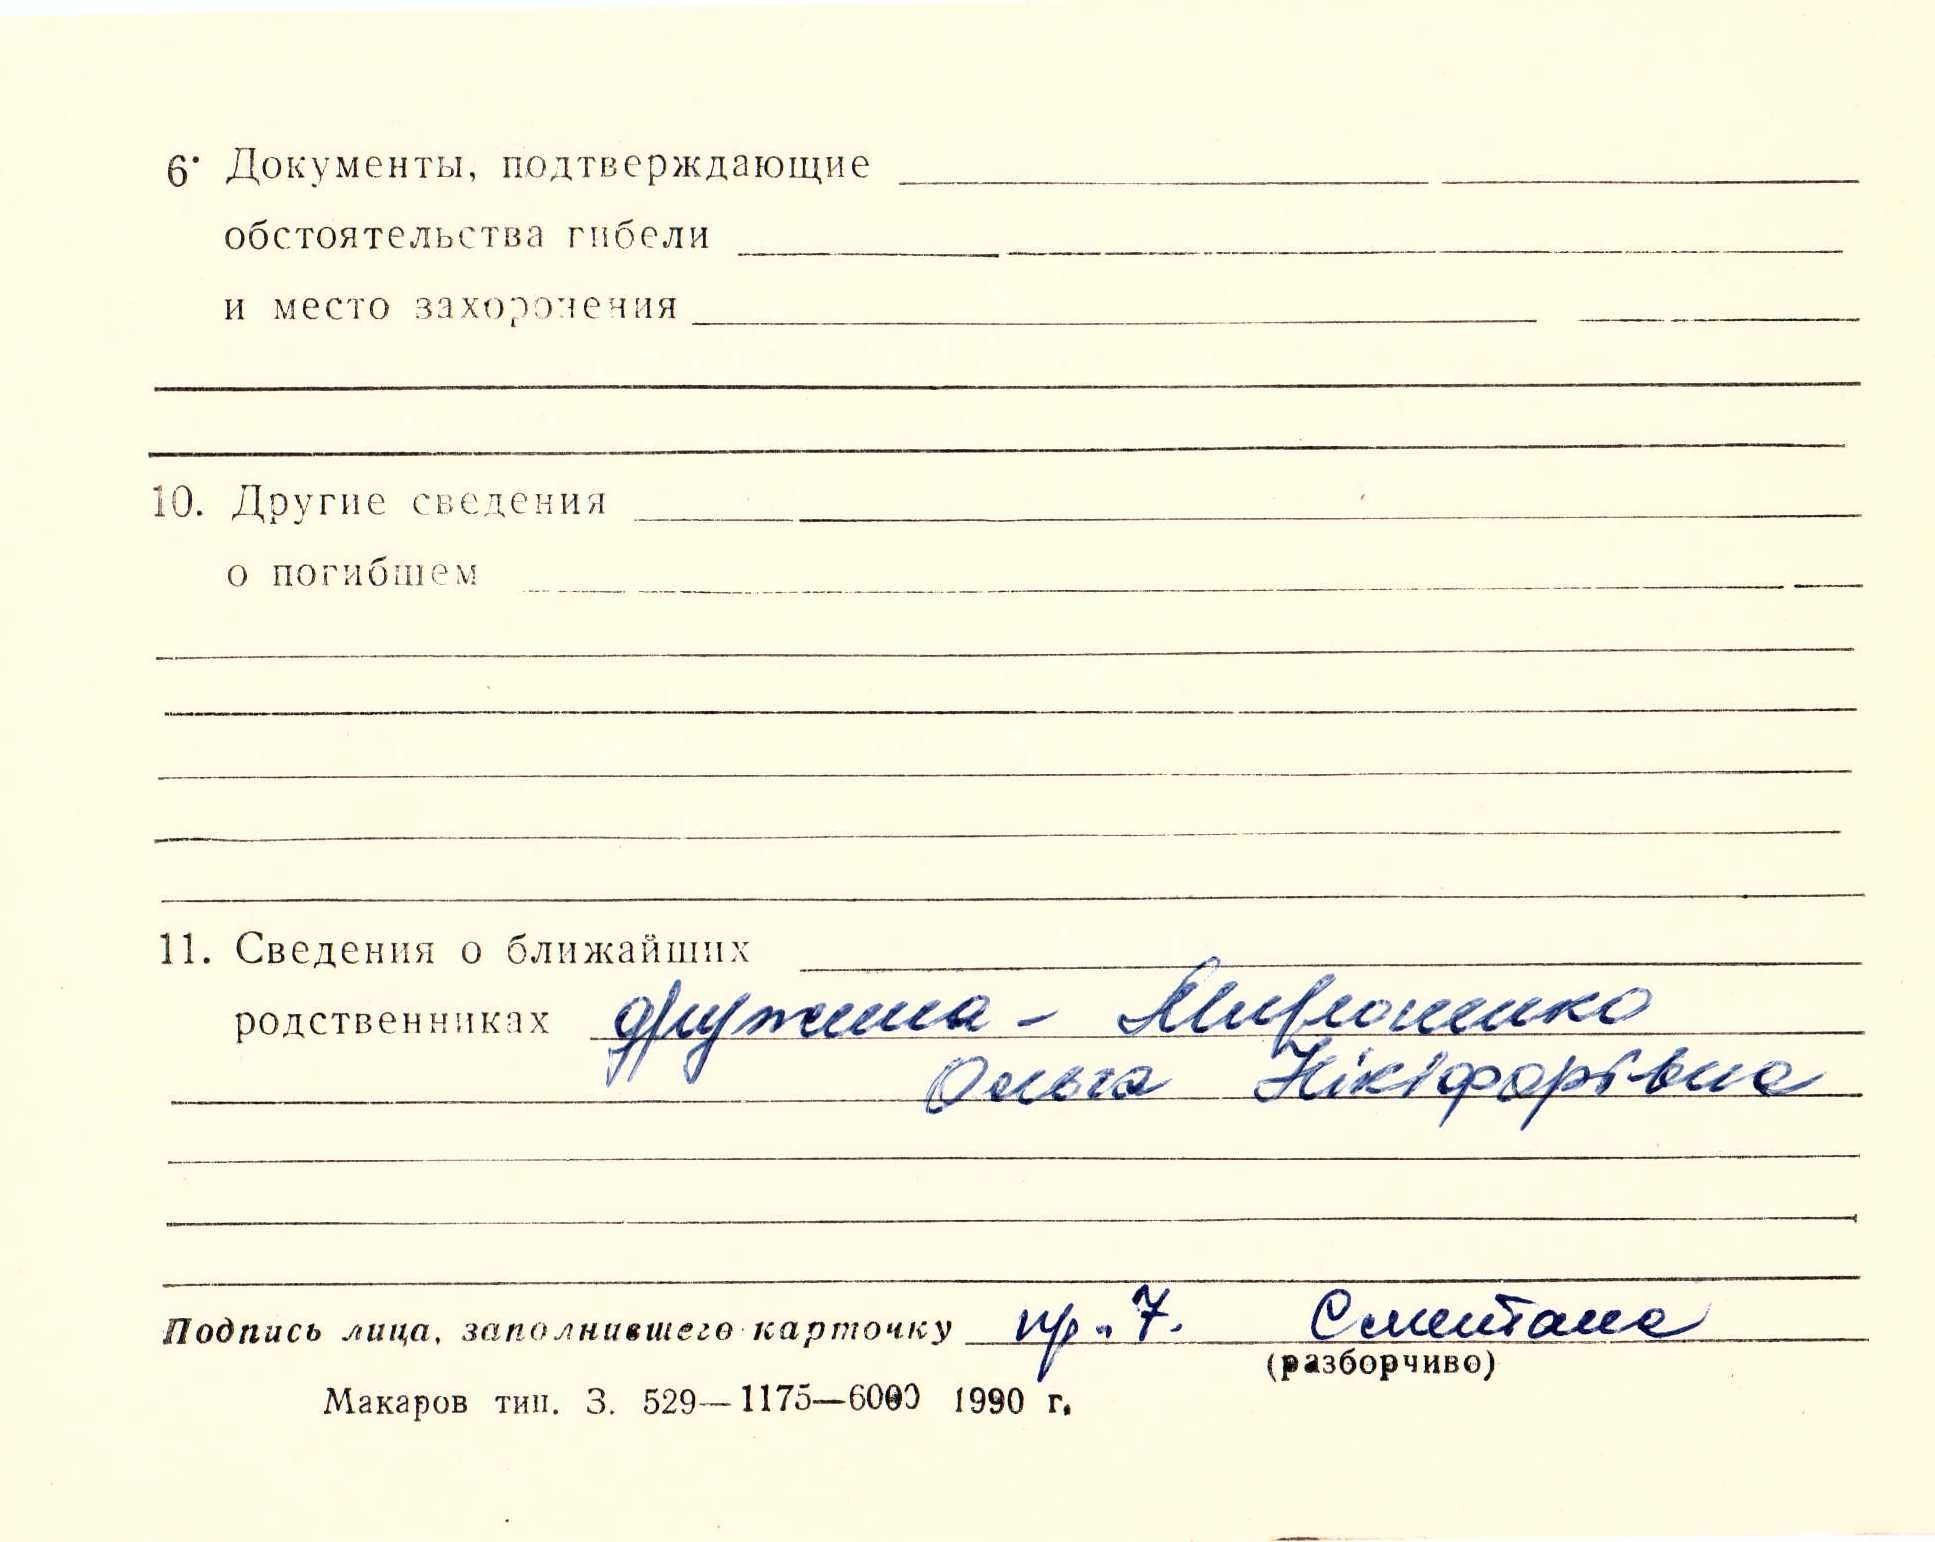 6. Документы, подтверждающие
обстоятельства гибели
и место захоронения
10. Другие сведения
о погибшем
11. Сведения о ближайших
родственниках дружина - Мироненко
Ольга Нікіфорівна
Подпись лица, заполнившего карточку пр. 7. Сметана
(разборчиво)
Макаров тип. З. 529—1175—6000 1990 г.